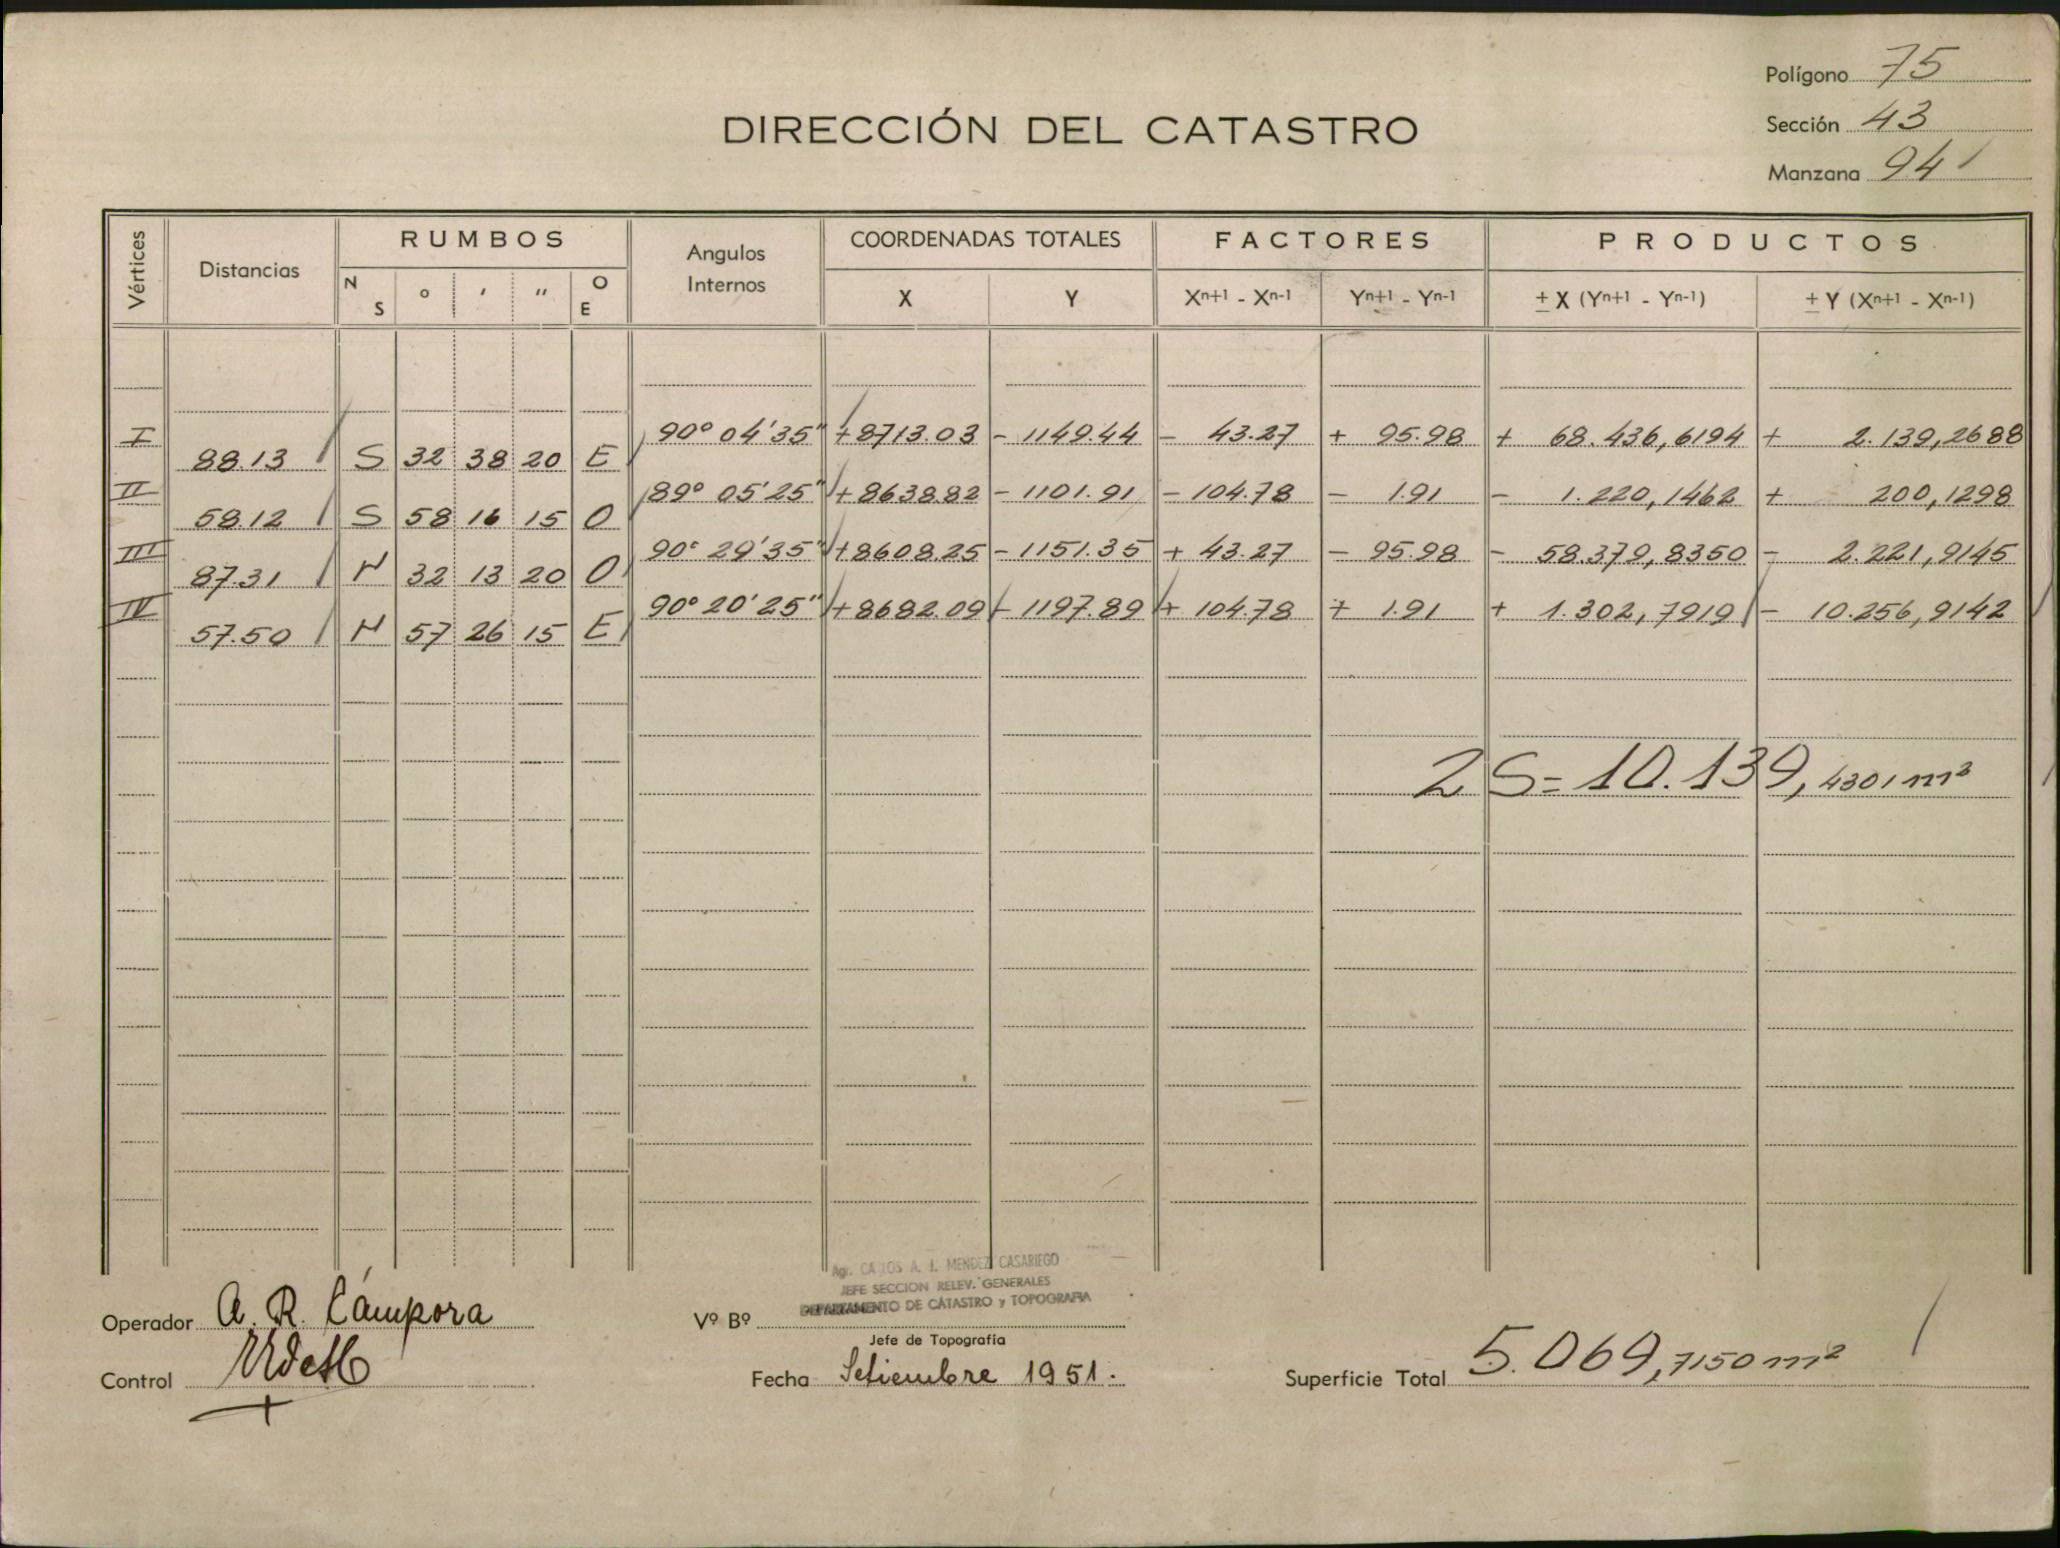 Polígono 75
DIRECCIÓN DEL CATASTRO
Sección 43
Manzana 94
Vértices Distancias RUMBOS Angulos Internos COORDENADAS TOTALES FACTORES PRODUCTOS
N S ° ′ ″ O E X Y Xn+1 - Xn-1 Yn+1 - Yn-1 ± X (Yn+1 - Yn-1) ± Y (Xn+1 - Xn-1)
I 90° 04' 35" +8713.03 - 1149.44 - 43.27 + 95.98 + 68.436,6194 + 2.139,2688
88.13 S 32 38 20 E
II 89° 05' 25" +8638.82 - 1101.91 - 104.78 - 1.91 - 1.220,1462 + 200,1298
58.12 S 58 16 15 O
III 90° 29' 35" +8608.25 - 1151.35 + 43.27 - 95.98 - 58.379,8350 - 2.221,9145
87.31 N 32 13 20 O
IV 90° 20' 25" +8682.09 - 1197.89 + 104.78 + 1.91 + 1.302,7919 - 10.256,9142
57.50 N 57 26 15 E
2 S = 10.139,4301 m²
Agr. CARLOS A. I. MENDEZ CASARIEGO
JEFE SECCION RELEV. GENERALES
DEPARTAMENTO DE CATASTRO y TOPOGRAFIA
Operador A. R. Cámpora
Vº Bº
Jefe de Topografía
Control
Fecha Setiembre 1951.
Superficie Total 5.069,7150 m²